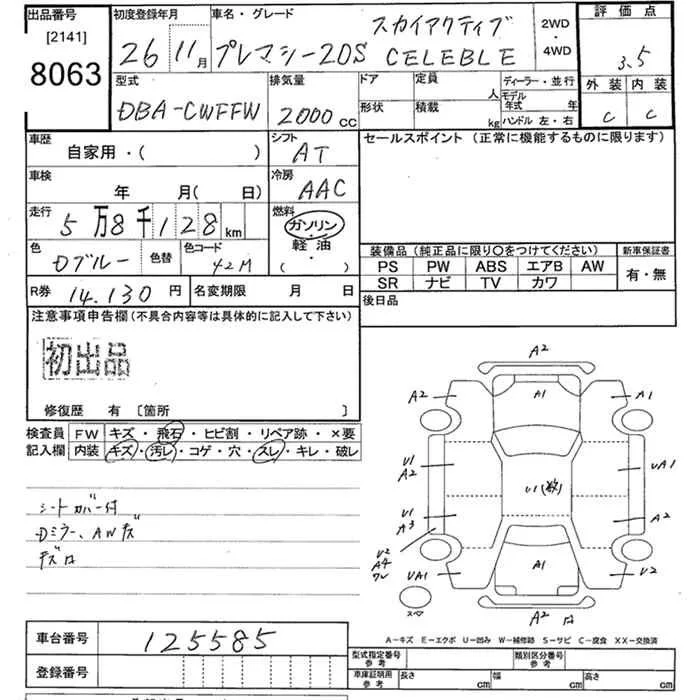 出品番号 初度登録年月 車名・グレード 2WD・4WD 評価点
[2141]
8063
26 11月 プレマシー20S スカイアクティブ CELEBLE 3.5
外装 内装
C C
型式 排気量 ドア 定員 人 ディーラー・並行
DBA-CWFFW 2000cc 形状 積載 kg モデル年式 年
ハンドル 左・右
車歴 シフト セールスポイント (正常に機能するものに限ります)
自家用・( ) AT
車検 冷房
年 月( 日) AAC
走行 燃料
5万8千128km ガソリン・軽油・( )
色 色替 色コード
Dブルー 42M
装備品 (純正品に限り○をつけてください) 新車保証書
PS PW ABS エアB AW 有・無
SR ナビ TV カワ
R券 14.130円 名変期限 月 日
後日品
注意事項申告欄 (不具合内容等は具体的に記入して下さい)
初出品
修復歴 有 [箇所 ]
検査員記入欄 FW キズ・飛石・ヒビ割・リペア跡・×要
内装 キズ・汚レ・コゲ・穴・スレ・キレ・破レ
シートカバー付
Dミラー、AWキズ
A2
A2 A1 A1
U1 A2 UA1
U1(数)
U1 A3 A2
U2 A4 ワレ
UA1 A1 U2
スペア
A2
A-キズ E-エクボ U-凹み W-補修跡 S-サビ C-腐食 XX-交換済
車台番号 125585
登録番号
型式指定番号 参考 類別区分番号 参考
車庫証明用 参考 長さ cm 幅 cm 高さ cm